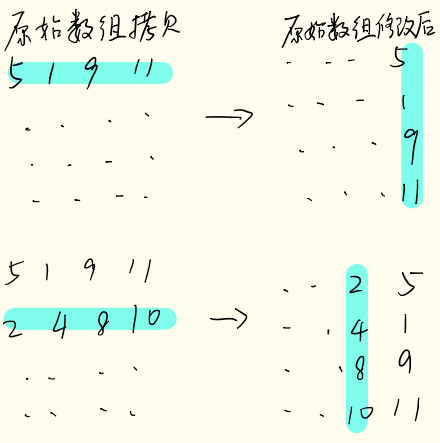 原始数组拷贝
5 1 9 11
. . . .
. . - .
- - - -
原始数组修改后
. - - 5
- - - 1
. . . 9
. . . 11
5 1 9 11
2 4 8 10
. . . .
. . . .
. - 2 5
- . 4 1
. . 8 9
- . 10 11